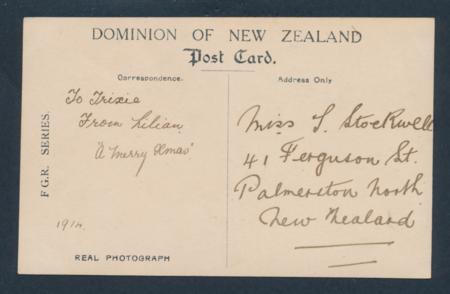 DOMINION OF NEW ZEALAND
Post Card.
Correspondence.
Address Only
F.G.R. SERIES.
To Trixie
From Lilian
"A Merry Xmas"
1914.
REAL PHOTOGRAPH
Miss S. Stockwell
41 Ferguson St.
Palmerston North
New Zealand